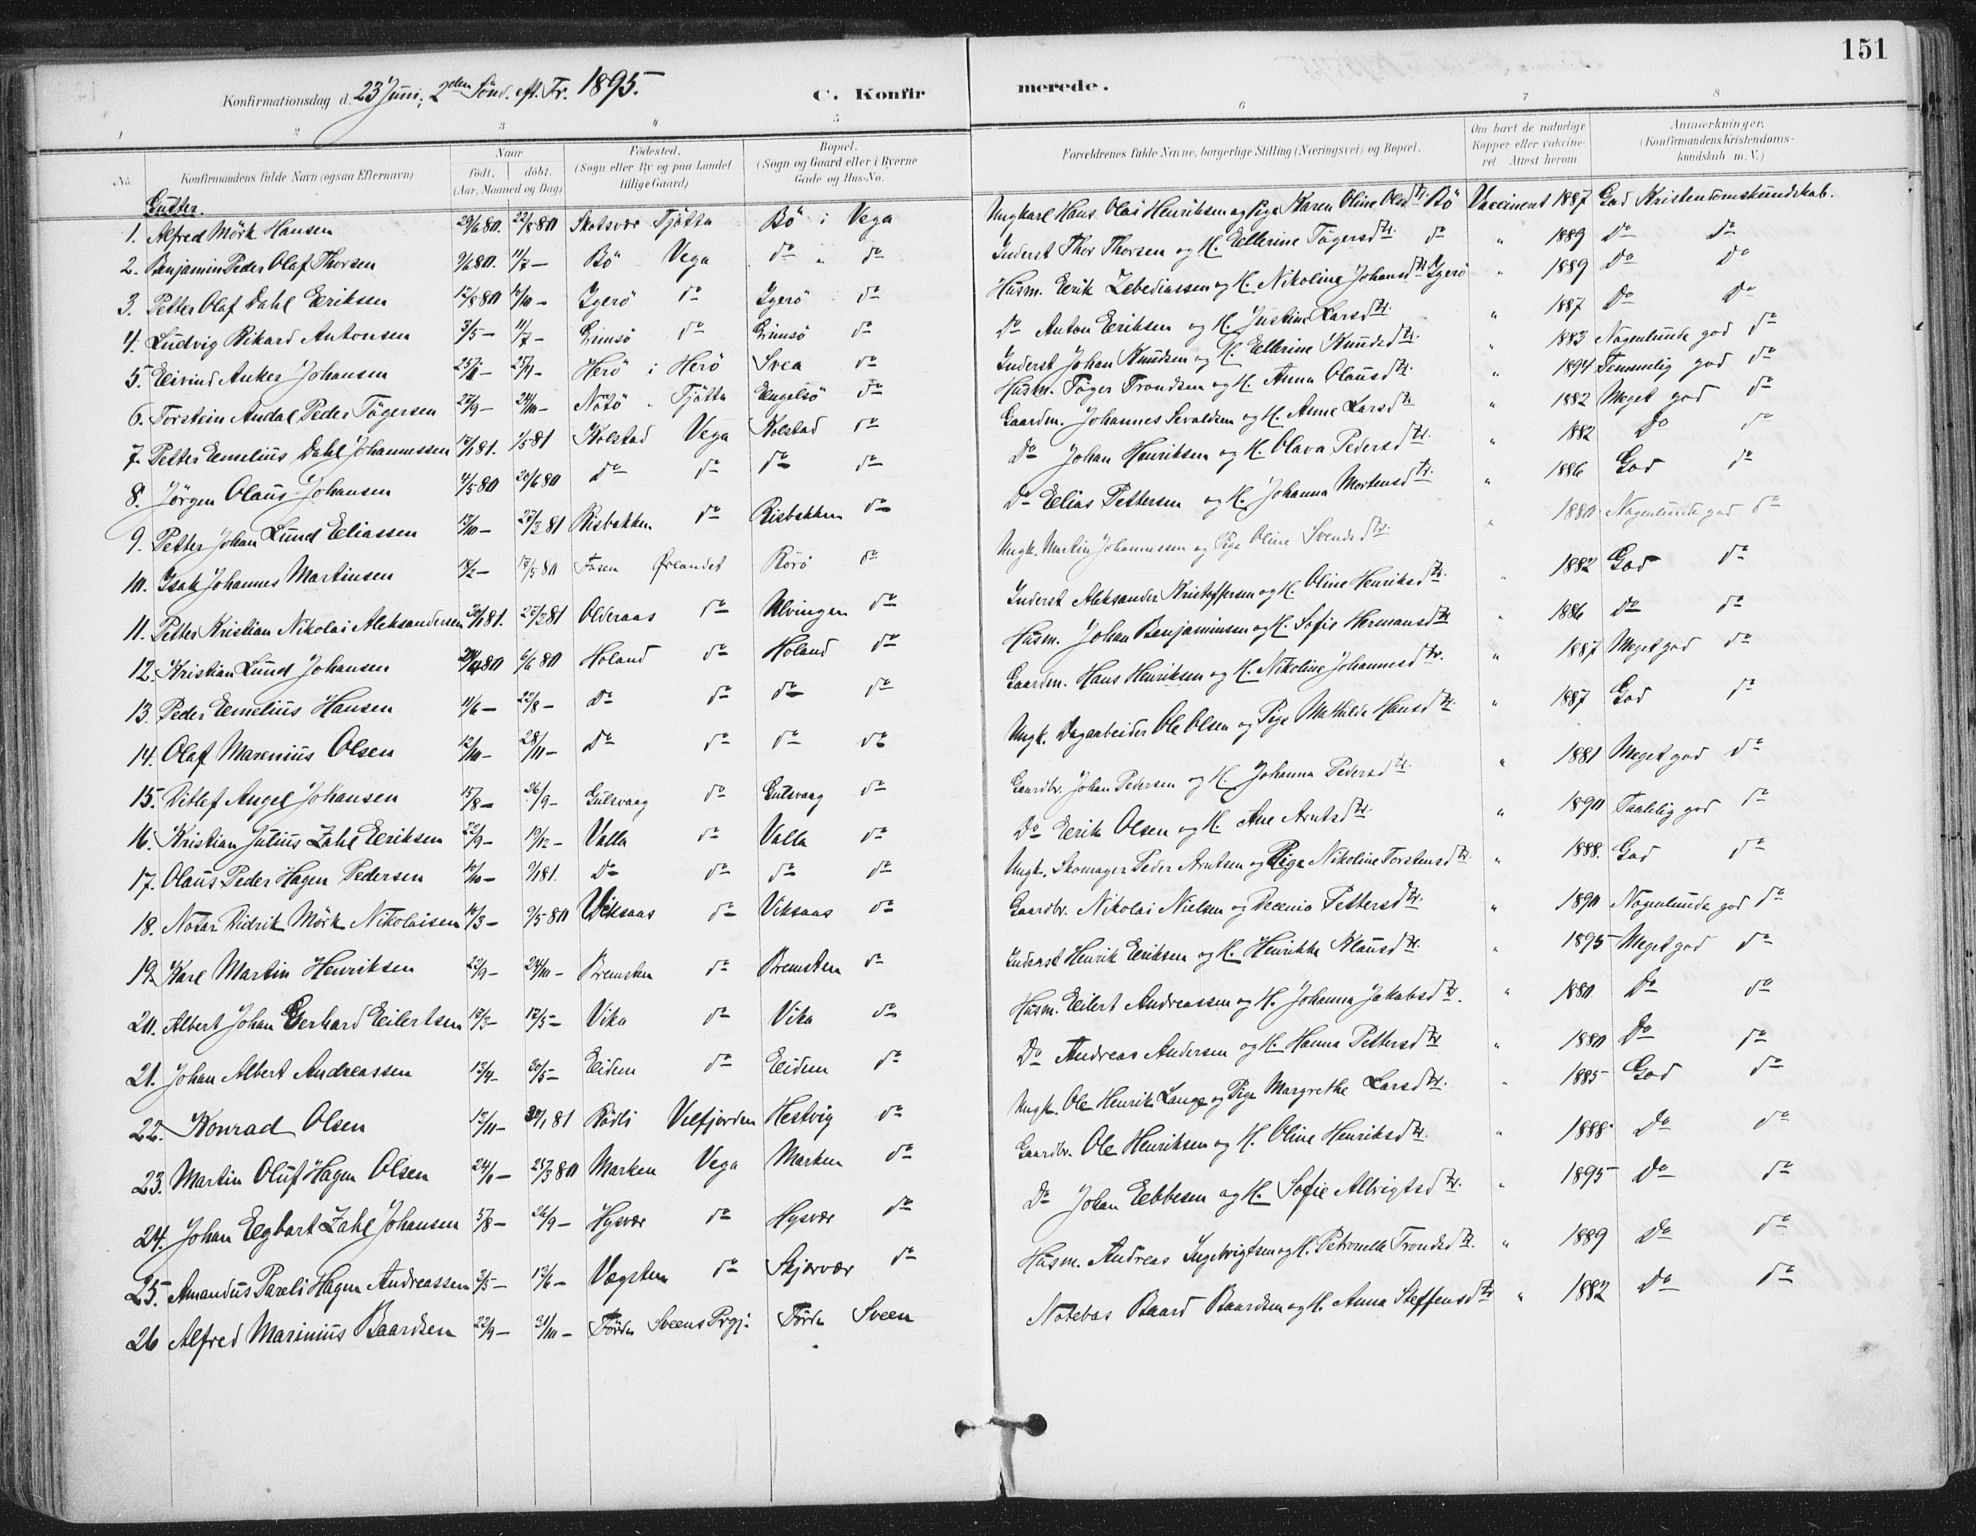 151
Konfirmationsdag d. 23 Juni, 2den Sönd. eft. Tr. 1895.
C. Konfirmerede.
1 2 3 4 5 6 7 8
No. Konfirmandens fulde Navn (ogsaa Efternavn) Naar födt. döbt. (Aar, Maaned og Dag) Födested. (Sogn eller By og paa Landet tillige Gaard) Bopæl. (Sogn og Gaard eller i Byerne Gade og Hus-No. Forældrenes fulde Navne, borgerlige Stilling (Næringsvei) og Bopæl. Om havt de naturlige Kopper eller vaccineret. Attest herom. Anmærkninger. (Konfirmandens Kristendomskundskab m. V.)
Gutter.
1. Alfred Mörk Hansen 29/6 80. 22/8 80 Skotsvær Tjötta Bö i Vega Ungkarl Hans Olai Henriksen og Pige Karen Oline Olsdtr. Bö Vaccineret 1887 God Kristendomskundskab.
2. Benjamin Peder Olaf Thorsen 9/6 80. 11/7 - Bö Vega do " do Inderst Thor Thorsen og H. Ellerine Tögersdtr. do " 1889 Do Do
3. Petter Olaf Dahl Eriksen 12/8 80 10/10 - Ygerö do Ygerö do Husm. Erik Zebediassen og H. Nikoline Johansdtr Ygerö " 1889 Do Do
4. Ludvig Rikard Antonsen 3/5 - 11/7 - Grimsö do Grimsö do Do Anton Eriksen og H. Justine Larsdtr. " 1887 Do Do
5. Eivind Anker Johansen Herö i Herö Svea do Inderst Johan Knudsen og H. Ellerine Knudsdtr. " 1883 Nogenlunde god do
6. Torstein Andal Peder Tögersen 27/9 - 24/10 - Nötö " Tjötta Engelsö do Husm. Töger Trondsen og H. Anna Olausdtr. " 1894 Temmelig god do
7. Petter Emelius Dahl Johannessen 12/1 81. 1/5 81 Kolstad Vega Kolstad do Gaardm. Johannes Sevaldsen og H. Anne Larsdtr " 1882 Meget god do
8. Jörgen Olaus Johansen 9/5 80 20/6 80 Do do do do Do Johan Henriksen og H. Olava Pedersdtr. " 1882 Do do
9. Petter Johan Lund Eliassen 12/10 - 27/3 81 Risbakken do Risbakken do Do Elias Pettersen og H. Johanna Mortensdtr. " 1886 God do
10. Isak Johannes Martinsen 18/2 - 12/5 80 Fosen Ørlandet Rörö do Ungk. Martin Johannessen og Pige Oline Svendsdtr. " 1880 Nogenlunde god do
11. Petter Kristian Nikolai Aleksandersen 30/1 81. 27/2 81 Olderaas do Ulvingen do Inderst Aleksander Kristoffersen og H. Oline Henriksdtr. " 1882 God do
12. Kristian Lund Johansen 24/4 80 6/6 80 Holand do Holand do Husm. Johan Benjaminsen og H. Sofie Hermansdtr " 1886 do do
13. Peder Emelius Hansen 11/6 - 22/8 - Do do do do Gaardm. Hans Henriksen og H. Nikoline Johannesdtr. " 1887 Meget god do
14. Olaf Marenius Olsen 12/10 - 28/11 - Do do do do Ungk. Dagarbeider Ole Olsen og Pige Mathilde Hansdtr. " 1887 God do
15. Ditlef Angel Johansen 15/8 - 26/9 - Gulsvaag do Gulsvaag do Gaardbr. Johan Pedersen og H. Johanna Pedersdtr. " 1881 Meget god do
16. Kristian Julius Zahl Eriksen 22/9 - 19/12 - Valla do Valla do Do Erik Olsen og H. Ane Arntsdtr. " 1890 Taalelig god do
17. Olaus Peder Hagen Pedersen 10/10 - 9/1 81. Do do do do Ungk. Skomager Peder Arntsen og Pige Nikoline Torstensdtr. " 1888. God do
18. Notar Didrik Mörk Nikolaisen 10/3 - 9/5 80 Viksaas do Viksaas do Gaardbr. Nikolai Nielsen og Decenia Pettersdtr. " 1890 Nogenlunde god do
19. Karl Martin Henriksen 22/9 - 24/10 - Bremsten do Bremsten do Inderst Henrik Eriksen og H. Henrikke Klausdtr. " 1895 Meget god do
20. Albert Johan Gerhard Eilertsen 12/3 - 12/5 - Vika do Vika do Husm. Eilert Andreassen og H. Johanna Jakobsdtr. " 1880. Do do
21. Johan Albert Andreassen 13/4 - 30/5 - Eidem do Eidem do Do Andreas Andersen og H. Hanna Pettersdtr " 1880 Do do
22. Konrad Olsen 12/11 - 30/1 81 Rödli Velfjorden Hestvig do Ungk. Ole Henrik Lange og Pige Margrethe Larsdtr. " 1885 God do
23. Martin Oluf Hagen Olsen 24/1 - 25/3 80 Marken Vega Marken do Gaardbr. Ole Henriksen og H. Oline Henriksdtr. " 1888 Do do
24. Johan Egbart Zahl Johansen 5/8 - 26/9 - Hysvær do Hysvær do Do Johan Ebbesen og H. Sofie Albrigtsdtr. " 1895 Do do
25. Amandus Pareli Hagen Andreassen 2/5 - 13/6 - Vægsten do Skjærvær do Husm. Andreas Ingebrigtsen og H. Petronelle Trondsdtr. " 1889 Do do
26 Alfred Marinius Baardsen 22/9 - 31/10 - Förde Sveens Prgj. Förde Sveen Notebas Baard Baardsen og H. Anna Steffensdtr " 1882 Do do